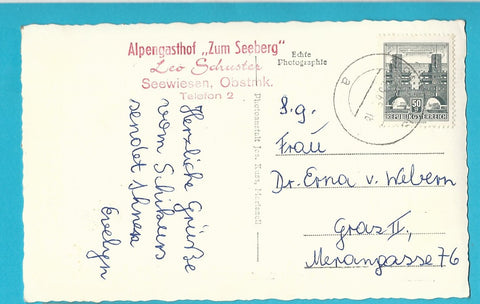 Alpengasthof „Zum Seeberg"
Leo Schuster
Seewiesen, Obstmk.
Telefon 2
Echte
Photographie
50
REPUBLIK ÖSTERREICH
Herzliche Grüße
vom Schikurs
sendet Ihnen
Evelyn
S.g.
Frau
Dr. Erna v. Webern
Graz II,
Merangasse 76